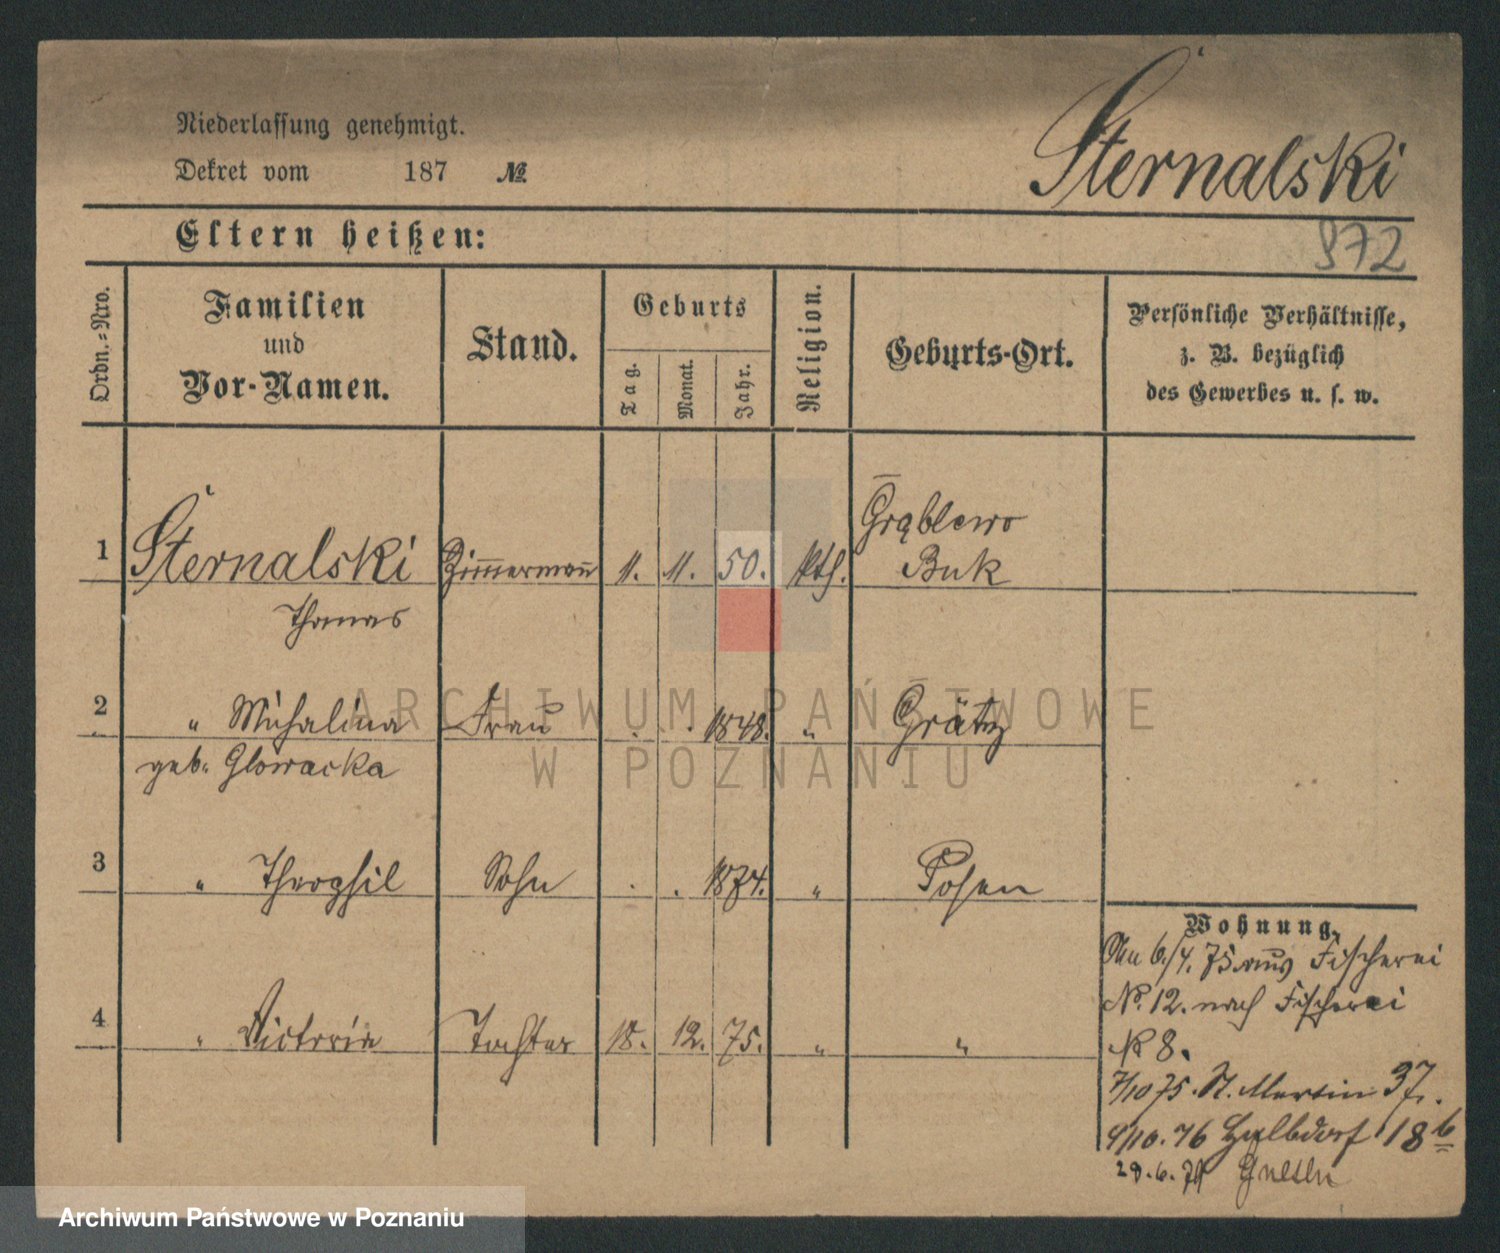 Niederlassung genehmigt.
Dekret vom 187 №
Sternalski
Eltern heißen:
972
Ordn.-Nro.
Familien
und
Vor-Namen.
Stand.
Geburts
Tag.
Monat.
Jahr.
Religion.
Geburts-Ort.
Persönliche Verhältnisse,
z. B. bezüglich
des Gewerbes u. s. w.
1 Sternalski Zimmermann 11. 11. 50. kth. Grąblewo
Buk
Thomas
2 " Michalina Frau 1848. " Grätz
geb. Glowacka
3 " Theophil Sohn 1874. " Posen
4 " Victoria Tochter 18. 12. 75. " "
Wohnung.
Am 6./4. 75 aus Fischerei
No. 12. nach Fischerei
No 8.
7/10 75. St. Martin 37.
9/10. 76 Halbdorf 18 b
29.6.
ARCHIWUM PAŃSTWOWE
W POZNANIU
Archiwum Państwowe w Poznaniu